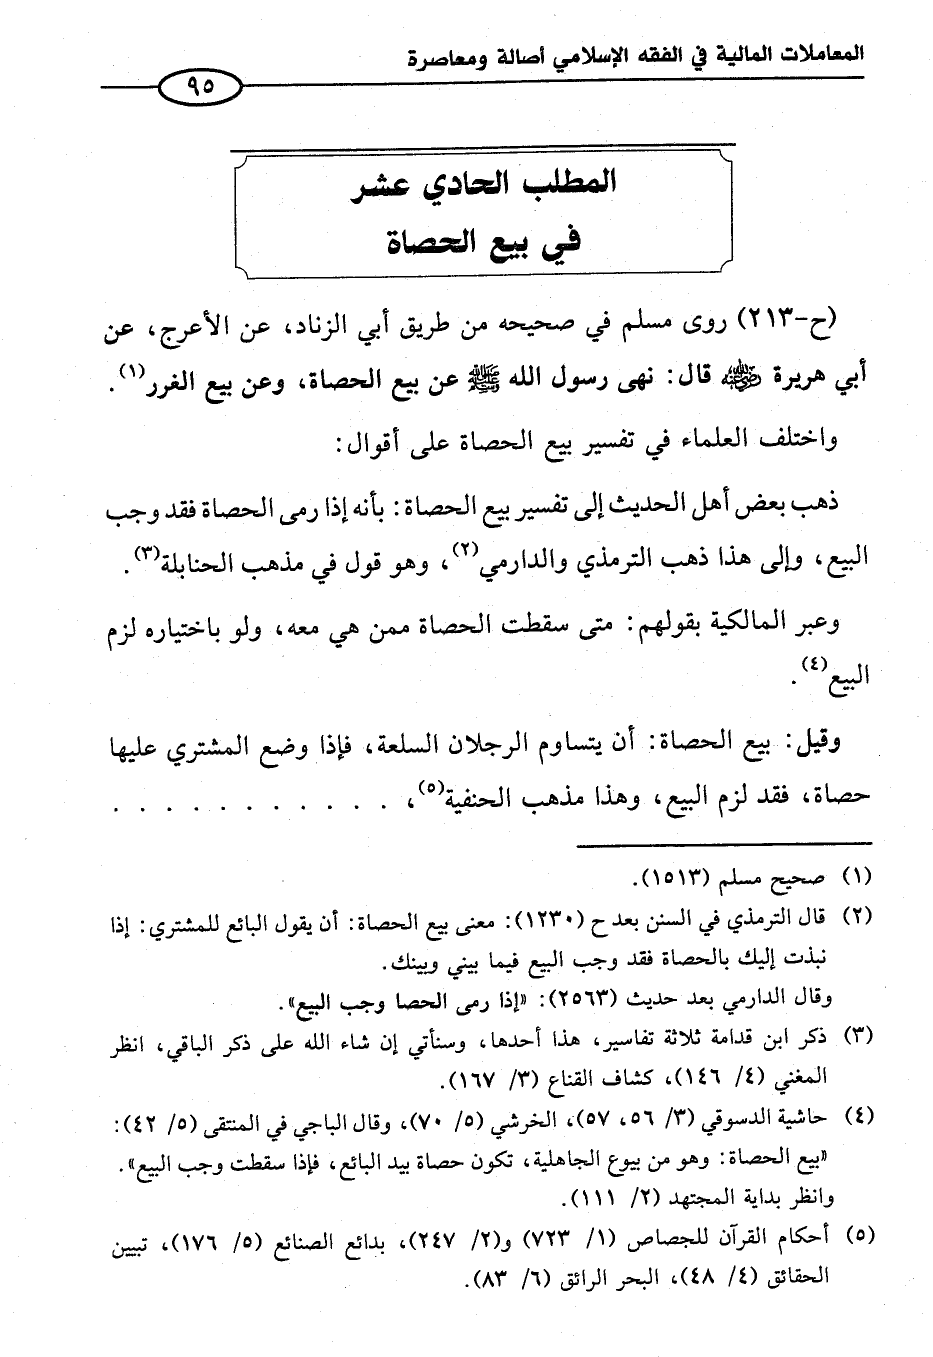 المعاملات المالية في الفقه الإسلامي أصالة ومعاصرة
٩٥
المطلب الحادي عشر
في بيع الحصاة
(ح-٢١٣) روى مسلم في صحيحه من طريق أبي الزناد، عن الأعرج، عن
أبي هريرة رضي الله عنه قال: نهى رسول الله ﷺ عن بيع الحصاة، وعن بيع الغرر(١).
واختلف العلماء في تفسير بيع الحصاة على أقوال:
ذهب بعض أهل الحديث إلى تفسير بيع الحصاة: بأنه إذا رمى الحصاة فقد وجب
البيع، وإلى هذا ذهب الترمذي والدارمي(٢)، وهو قول في مذهب الحنابلة(٣).
وعبر المالكية بقولهم: متى سقطت الحصاة ممن هي معه، ولو باختياره لزم
البيع(٤).
وقيل: بيع الحصاة: أن يتساوم الرجلان السلعة، فإذا وضع المشتري عليها
حصاة، فقد لزم البيع، وهذا مذهب الحنفية(٥)، . . . . . . . . . . .
(١) صحيح مسلم (١٥١٣).
(٢) قال الترمذي في السنن بعد ح (١٢٣٠): معنى بيع الحصاة: أن يقول البائع للمشتري: إذا
نبذت إليك بالحصاة فقد وجب البيع فيما بيني وبينك.
وقال الدارمي بعد حديث (٢٥٦٣): «إذا رمى الحصا وجب البيع».
(٣) ذكر ابن قدامة ثلاثة تفاسير، هذا أحدها، وسنأتي إن شاء الله على ذكر الباقي، انظر
المغني (٤/ ١٤٦)، كشاف القناع (٣/ ١٦٧).
(٤) حاشية الدسوقي (٣/ ٥٦، ٥٧)، الخرشي (٥/ ٧٠)، وقال الباجي في المنتقى (٥/ ٤٢):
«بيع الحصاة: وهو من بيوع الجاهلية، تكون حصاة بيد البائع، فإذا سقطت وجب البيع».
وانظر بداية المجتهد (٢/ ١١١).
(٥) أحكام القرآن للجصاص (١/ ٧٢٣) و(٢/ ٢٤٧)، بدائع الصنائع (٥/ ١٧٦)، تبيين
الحقائق (٤/ ٤٨)، البحر الرائق (٦/ ٨٣).